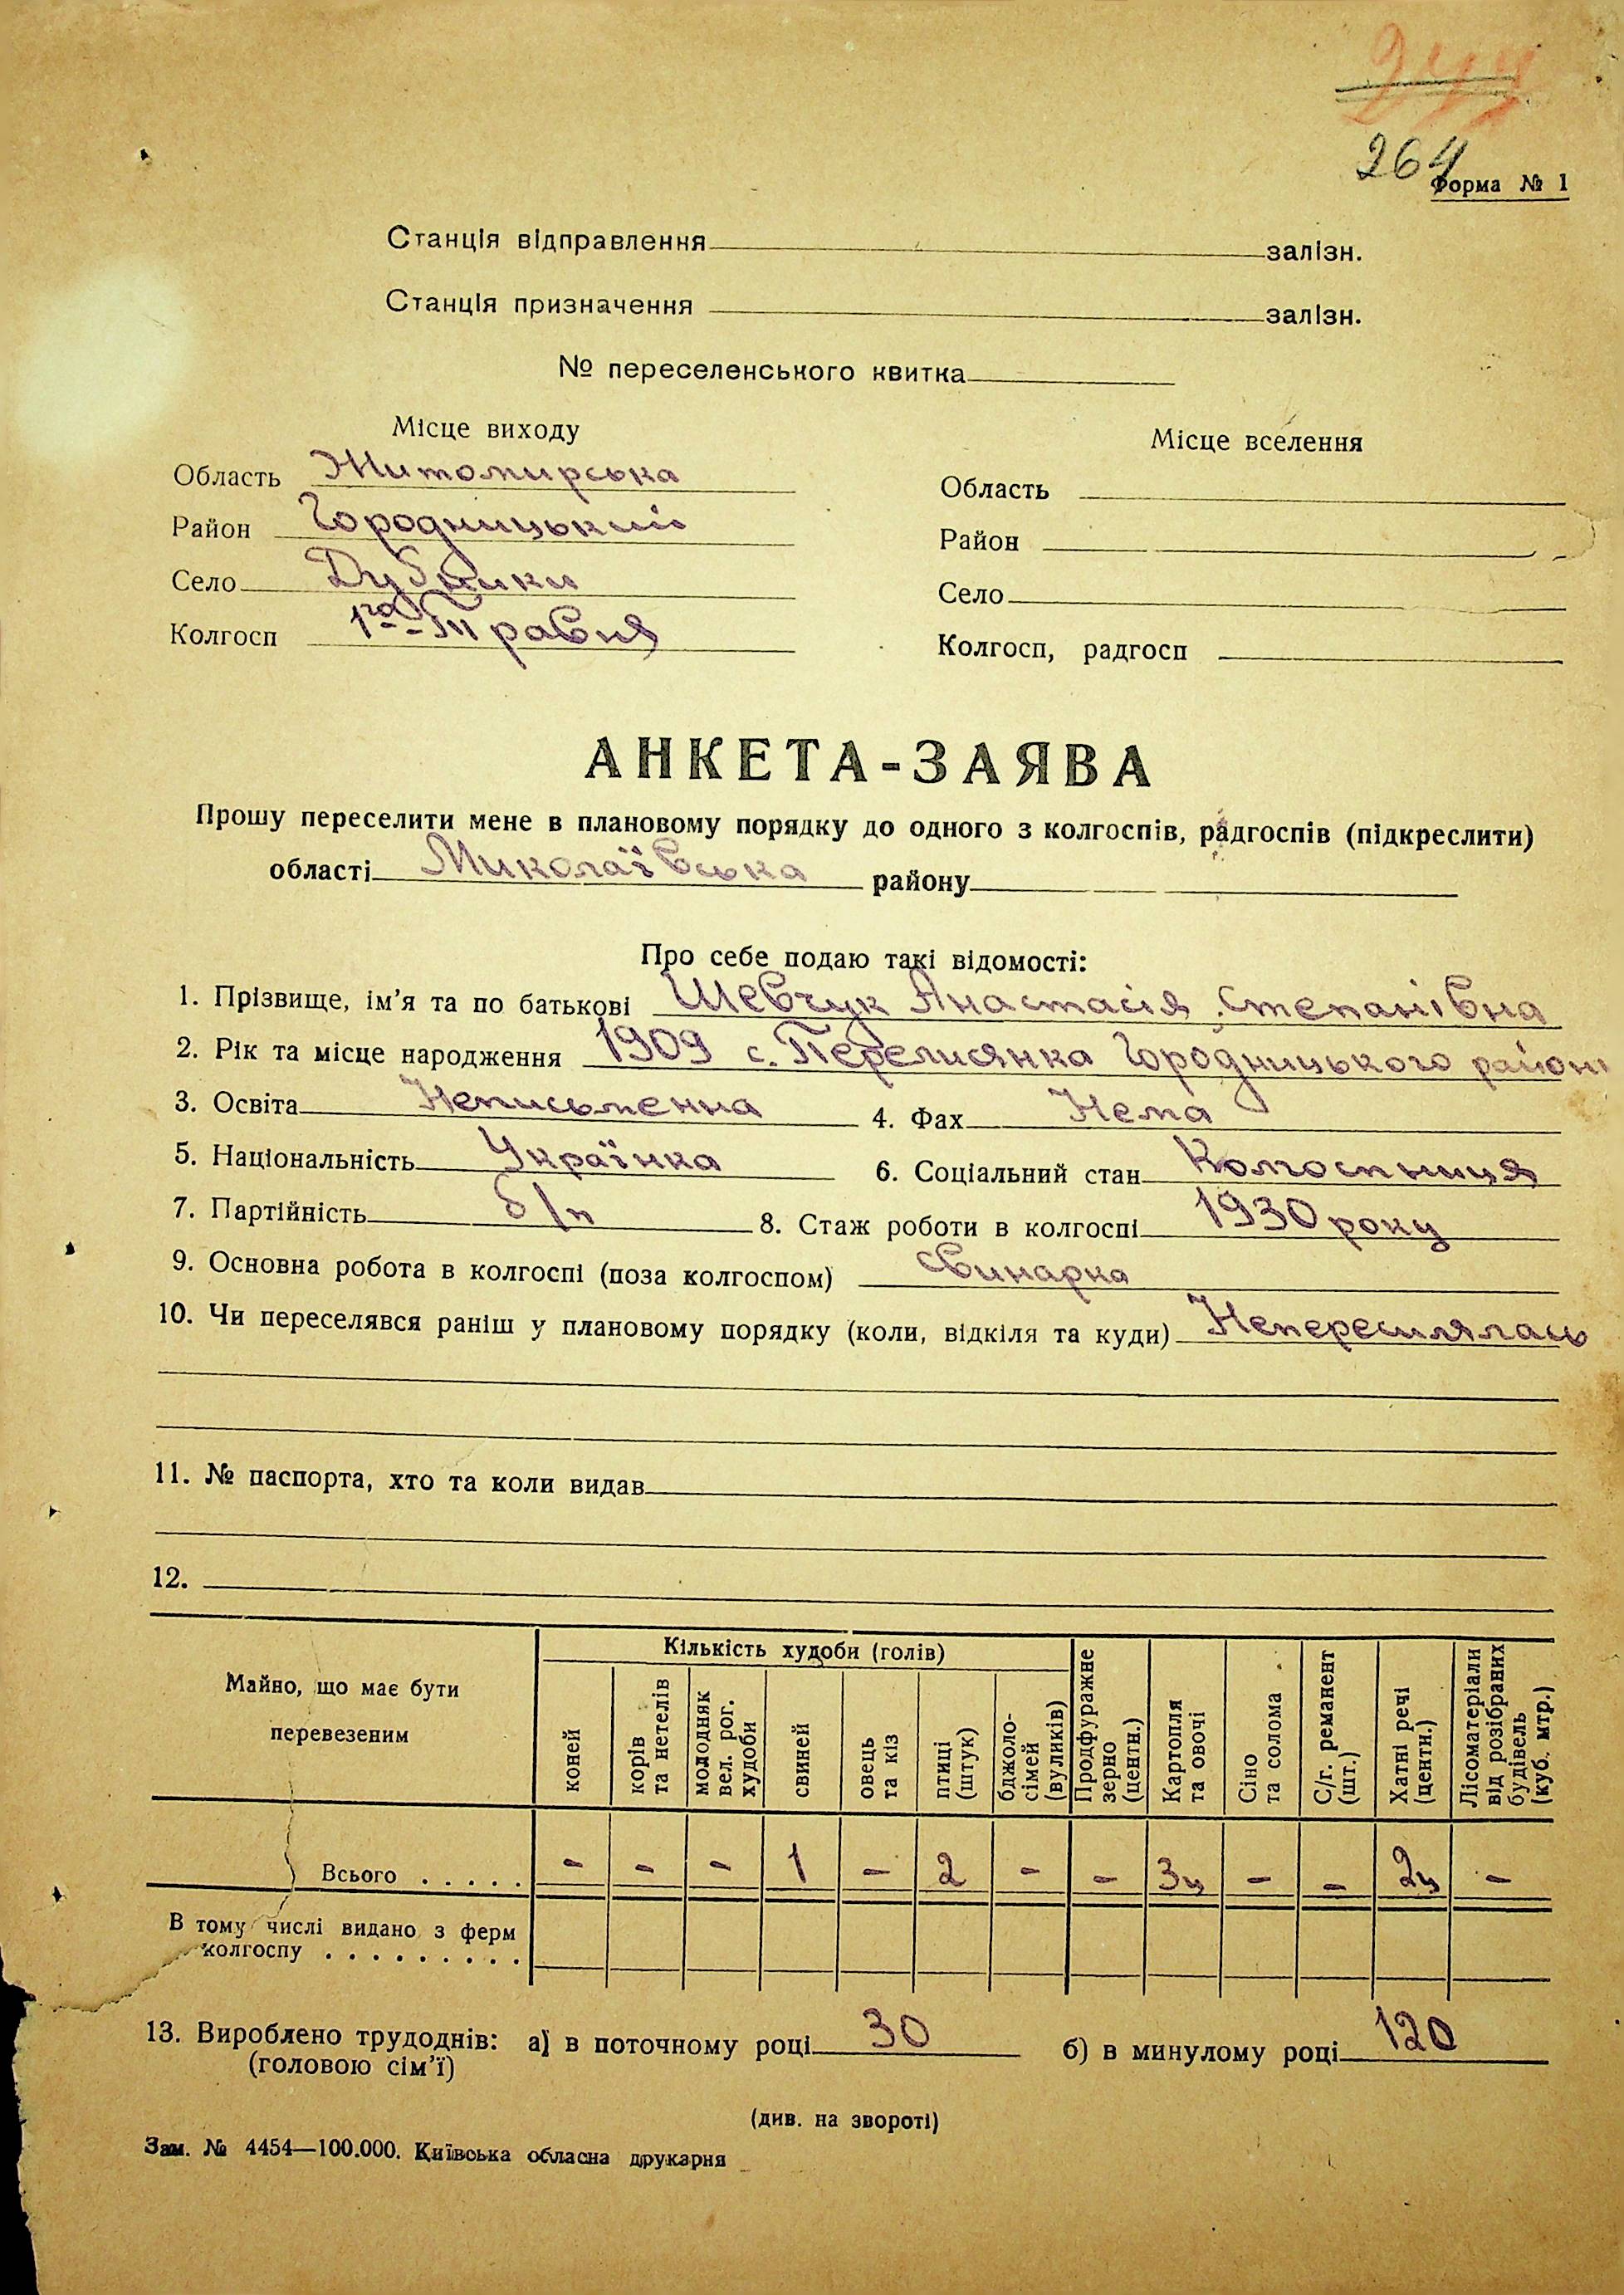 264
Форма № 1
Станція відправлення залізн.
Станція призначення залізн.
№ переселенського квитка
Місце виходу
Область Житомирська
Район Городницький
Село Дубники
Колгосп 1го Травня
Місце вселення
Область
Район
Село
Колгосп, радгосп
АНКЕТА-ЗАЯВА
Прошу переселити мене в плановому порядку до одного з колгоспів, радгоспів (підкреслити)
області Миколаївська району
Про себе подаю такі відомості:
1. Прізвище, ім’я та по батькові Шевчук Анастасія Степанівна
2. Рік та місце народження 1909 с. Перелисянка Городницького району
3. Освіта Неписьменна 4. Фах Нема
5. Національність Українка 6. Соціальний стан Колгоспниця
7. Партійність б/п 8. Стаж роботи в колгоспі 1930 року
9. Основна робота в колгоспі (поза колгоспом) свинарка
10. Чи переселявся раніш у плановому порядку (коли, відкіля та куди) Непереселялась
11. № паспорта, хто та коли видав
12.
Майно, що має бути перевезеним
Кількість худоби (голів)
коней
корів та нетелів
молодняк вел. рог. худоби
свиней
овець та кіз
птиці (штук)
бджоло-сімей (вуликів)
Продфуражне зерно (центн.)
Картопля та овочі
Сіно та солома
С/г. реманент (шт.)
Хатні речі (центн.)
Лісоматеріали від розібраних будівель (куб. мтр.)
Всього . . . . . - - - 1 - 2 - - 3ц - - 2ц -
В тому числі видано з ферм
колгоспу . . . . . . . . .
13. Вироблено трудоднів: а) в поточному році 30 б) в минулому році 120
(головою сім’ї)
(див. на звороті)
Зам. № 4454—100.000. Київська обласна друкарня